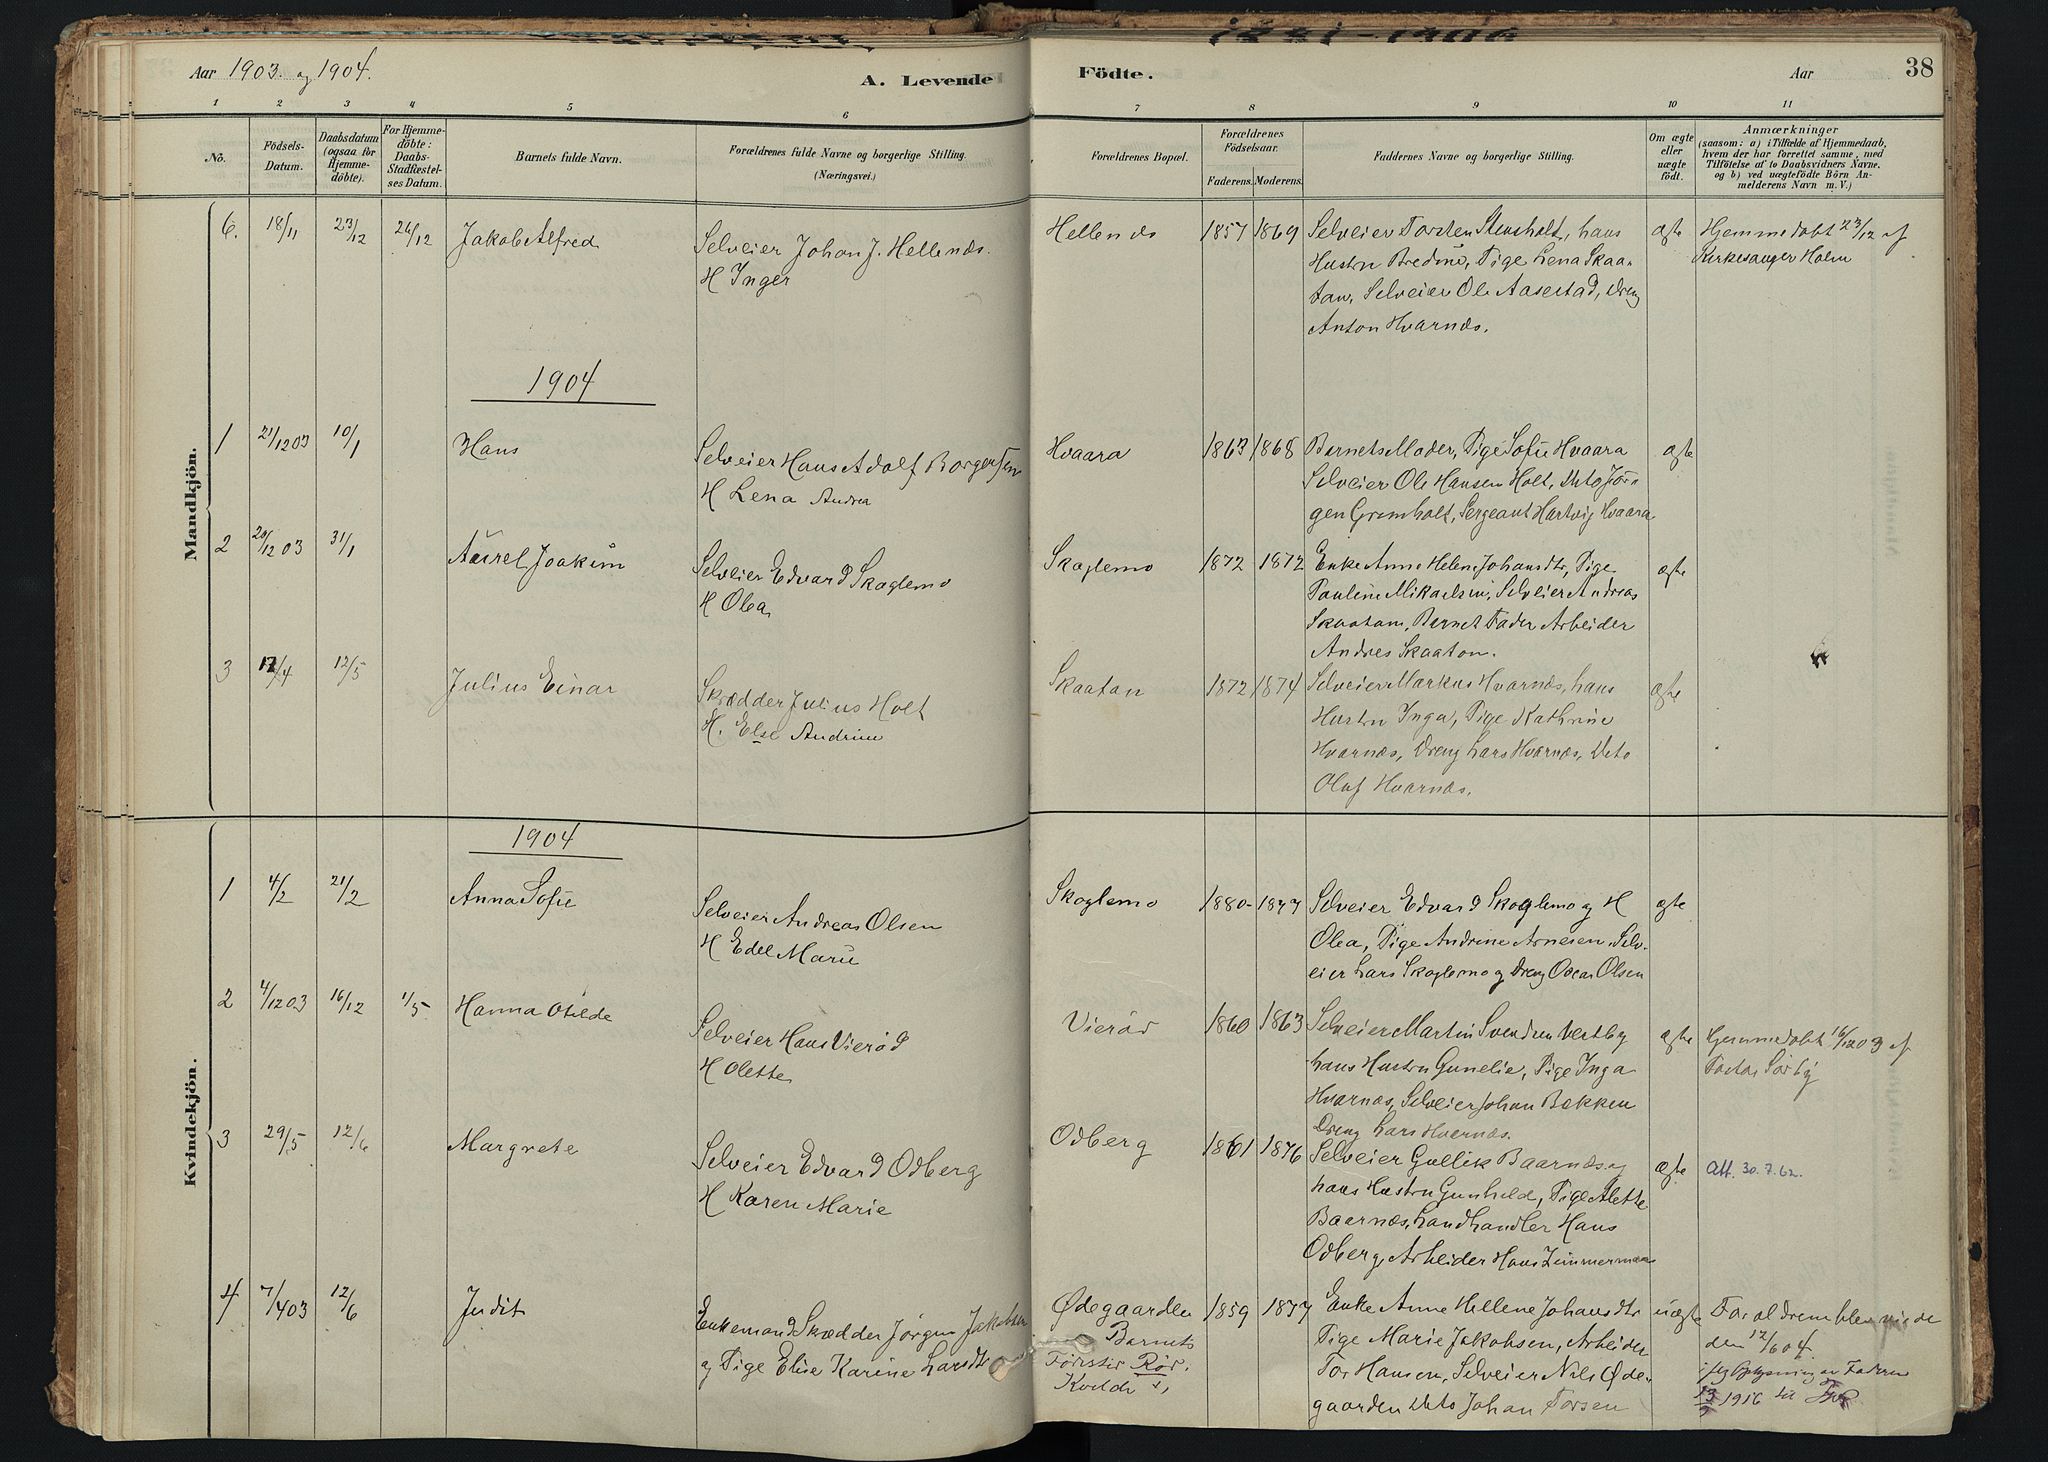 Aar 1903. og 1904.
A. Levende Födte.
Aar
38
1 2 3 4 5 6 7 8 9 10 11
No.
Födsels-
Datum.
Daabsdatum
(ogsaa for
Hjemme-
döbte).
For Hjemme-
döbte:
Daabs-
Stadfæstel-
ses Datum.
Barnets fulde Navn.
Forældrenes fulde Navne og borgerlige Stilling.
(Næringsvei.)
Forældrenes Bopæl.
Forældrenes
Födselsaar.
Faderens. Moderens.
Faddernes Navne og borgerlige Stilling.
Om ægte
eller
uægte
födt.
Anmærkninger
(saasom: a) i Tilfælde af Hjemmedaab,
hvem der har forrettet samme, med
Tilföielse af to Daabsvidners Navne.
og b) ved uægtefödte Börn An-
melderens Navn m. V.)
Mandkjön.
6. 18/11 23/12 26/12 Jakob Alfred
Selveier Johan J. Hellenæs.
H Inger
Hellenæs 1857 1869
Selveier Torsten Stensholt, hans
Hustru Bredine, Pige Lena Skaa-
tan, Selveier Ole Aasestad, Dreng
Anton Hvarnæs.
ægte
Hjemmedøbt 23/12 af
Kirkesanger Holm
1904
1 21/12 03 10/1 Hans
Selveier Hans Adolf Borgersen
H Lena Andrea
Hvaara 1863 1868
Barnets Moder, Pige Sofie Hvaara
Selveier Ole Hansen Holt, Dito Jör-
gen Gromholt, Sergeant Hartvig Hvaara
ægte
2 20/12 03 31/1 Aksel Joakim
Selveier Edvard Skoglemo
H Olea
Skoglemo 1872 1872
Enke Anne Helene Johansdtr, Pige
Pauline Mikaelsen, Selveier Andreas
Skaatan, Barnet Fader Arbeider
Andres Skaaton.
ægte
3 12/4 12/5 Julius Einar
Skrædder Julius Holt
H. Else Andrine
Skaatan 1872 1874
Selveier Markus Hvarnæs, hans
Hustru Inga, Pige Kathrine
Hvarnæs, Dreng Lars Hvarnæs, Dito
Oluf Hvarnæs.
ægte
Kvindekjön.
1904
1 4/2 21/2 Anna Sofie
Selveier Andreas Olsen
H Edel Marie
Skoglemo 1880 1877
Selveier Edvard Skoglemo og H
Olea, Pige Andrine Arnesen, Selv-
eier Lars Skoglemo og Dreng Oscar Olsen
ægte
2 4/12 03 16/12 1/5 Hanna Otilde
Selveier Hans Vierød
H Olette
Vierød 1860 1863
Selveier Martin Svendsen Vestby
hans Hustru Gunelie, Pige Inga
Hvarnæs, Selveier Johan Bakken
Dreng Lars Hvarnæs.
ægte
Hjemmedøbt 16/12 03 af
Doctor Sørby
3 29/5 12/6 Margrete
Selveier Edvard Odberg
H Karen Marie
Odberg 1861 1876
Selveier Gullik Baarnæs og
hans Hustru Gunhild, Pige Alette
Baarnæs, Landhandler Hans
Odberg, Arbeider Hans Zimmermann
ægte
Att. 30.7.62.
4 7/4 03 12/6 Judit
Enkemand Skrædder Jørgen Jakobsen
og Pige Elise Karine Larsdtr
Ødegaarden
Barnets
Rør.
Kvelde
1859 1877
Enke Anne Hellene Johansdtr
Pige Marie Jakobsen, Arbeider
Tor Hansen, Selveier Nils Øde-
gaarden Dito Johan Torsen
uægte
Foraldrene blev viede
den 12/6 04.
iflg Oplysning av Faderen
13/9 1916 til